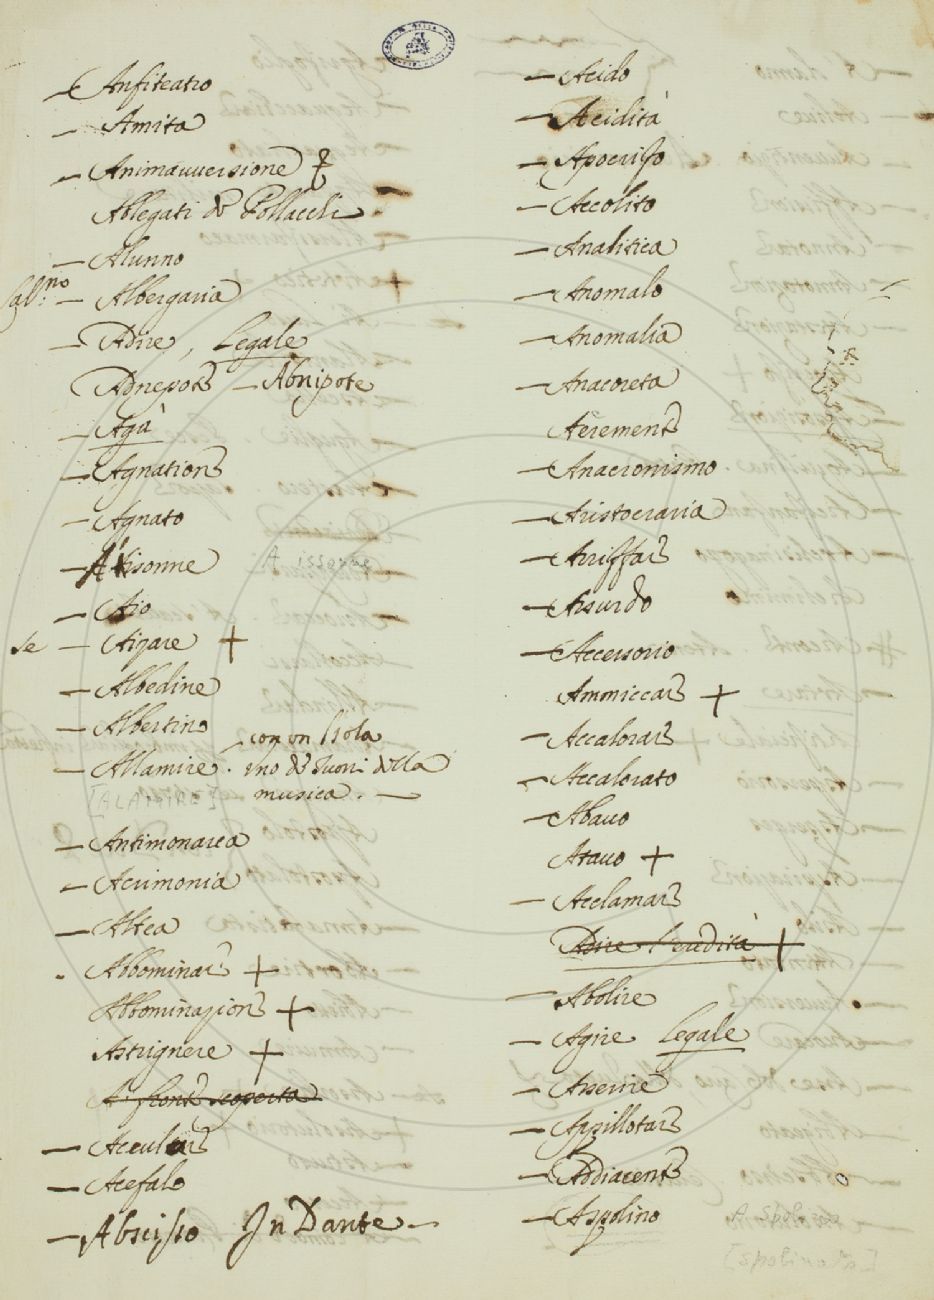 — Anfiteatro
— Amita
— Animauuersione
Ablegati de Pollacchi
— Alunno
— Albergaria
— Adire, Legale
Adnepote — Abnipote
— Agù
— Agnatione
— Agnato
— Aio
se — Aizare +
— Albedine
— Albertino
— Allamire. uno de suoni della
con un l sola
musica. —
[ALAMIRE]
— Antimonarca
— Acrimonia
— Altea
Abbominare +
Abbominazione +
Astrignere +
A fronte scoperta
— Acefalo
— Abscisso In Dante —
— Acido
— Acidità
— Apocrifo
— Accolito
— Analitica
— Anomalo
— Anomalia
— Anacoreta
— Anacronismo
— Aristocrazia
— Arriffare
— Assurdo
— Accessorio
Ammiccare +
— Accalorare
— Accalorato
— Abauo
Atauo +
— Acclamare
Adire l'eredità +
— Abolire
— Agire Legale
— Asserire
— Appillotare
— Addiacente
— Aspolino